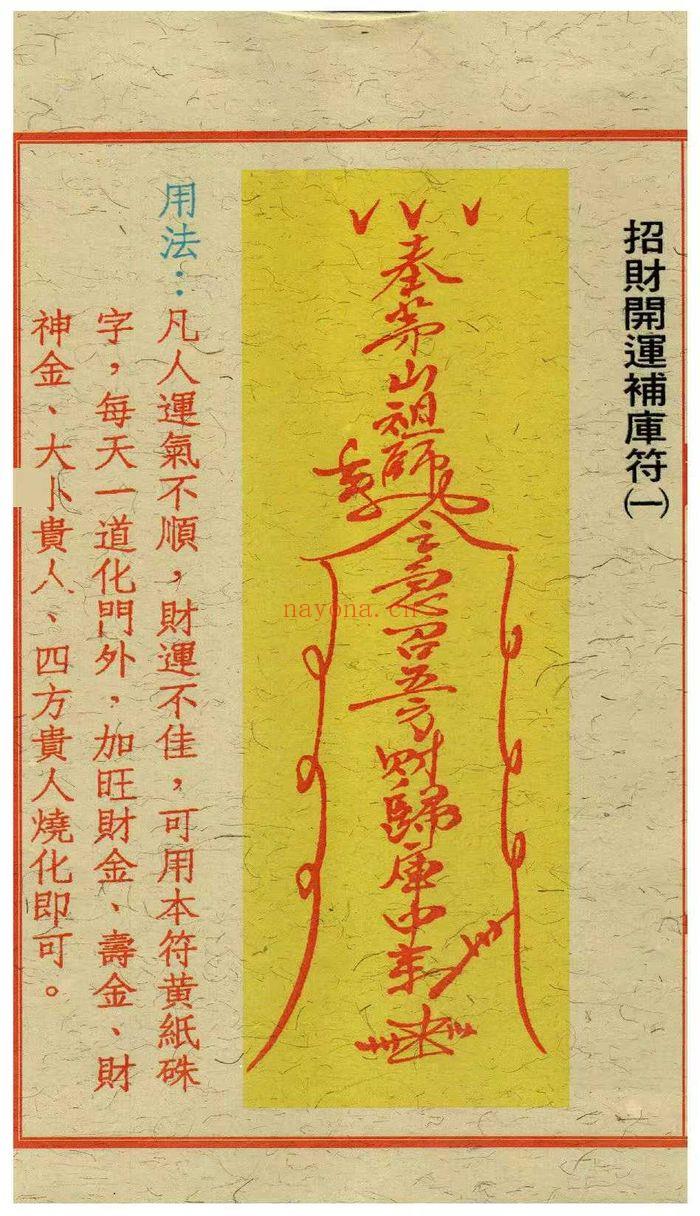 招財開運補庫符㈠
奉茅山祖師
急召五方財歸庫中
nayona.cn
用法：凡人運氣不順，財運不佳，可用本符黃紙硃
字，每天一道化門外，加旺財金、壽金、財
神金、大卜貴人、四方貴人燒化即可。